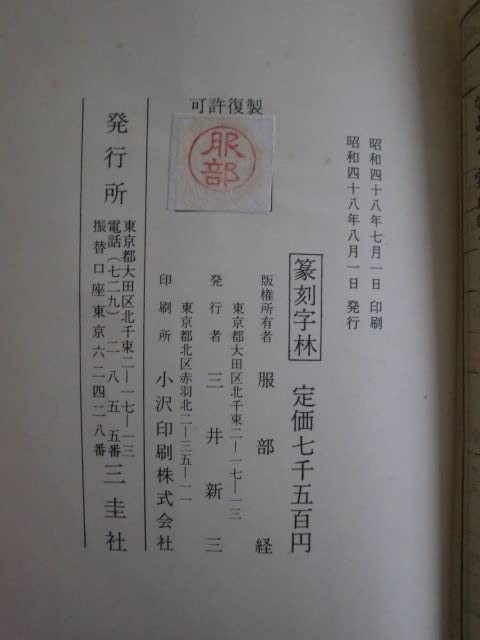 昭和四十八年七月一日 印刷
昭和四十八年八月一日 発行
篆刻字林 定価七千五百円
版権所有者 服部 経
東京都大田区北千束二―一七―一三
発行者 三井新三
東京都北区赤羽北二―三五―一一
印刷所 小沢印刷株式会社
可許復製
服部
発行所 三圭社
東京都大田区北千束二―一七―一三
電話(七二九)二八五五番
振替口座東京六二四二八番